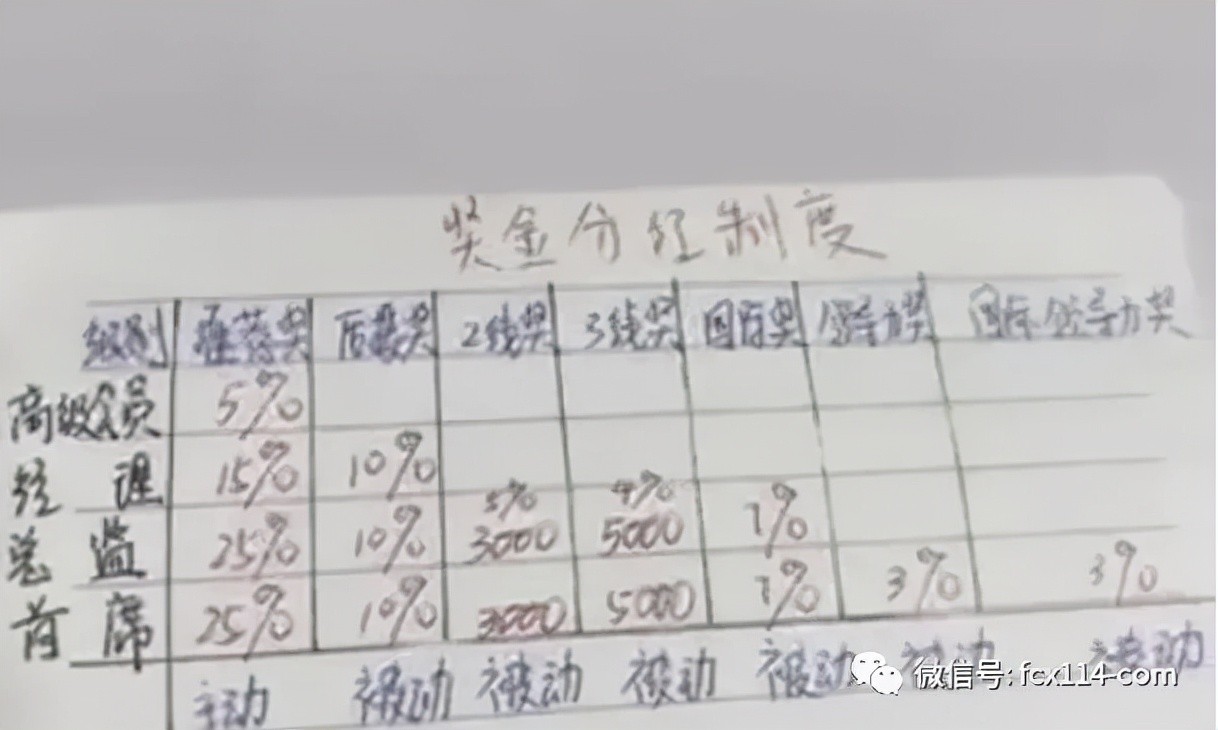 奖金分红制度
级别 推荐奖 后勤奖 2线奖 3线奖 国际奖 领导力奖 国际领导力奖
高级会员 5%
经理 15% 10%
5% 4%
总监 25% 10% 3000 5000 1%
首席 25% 10% 3000 5000 1% 3% 3%
主动 被动 被动 被动 被动 被动 被动
微信号: fcx114-com